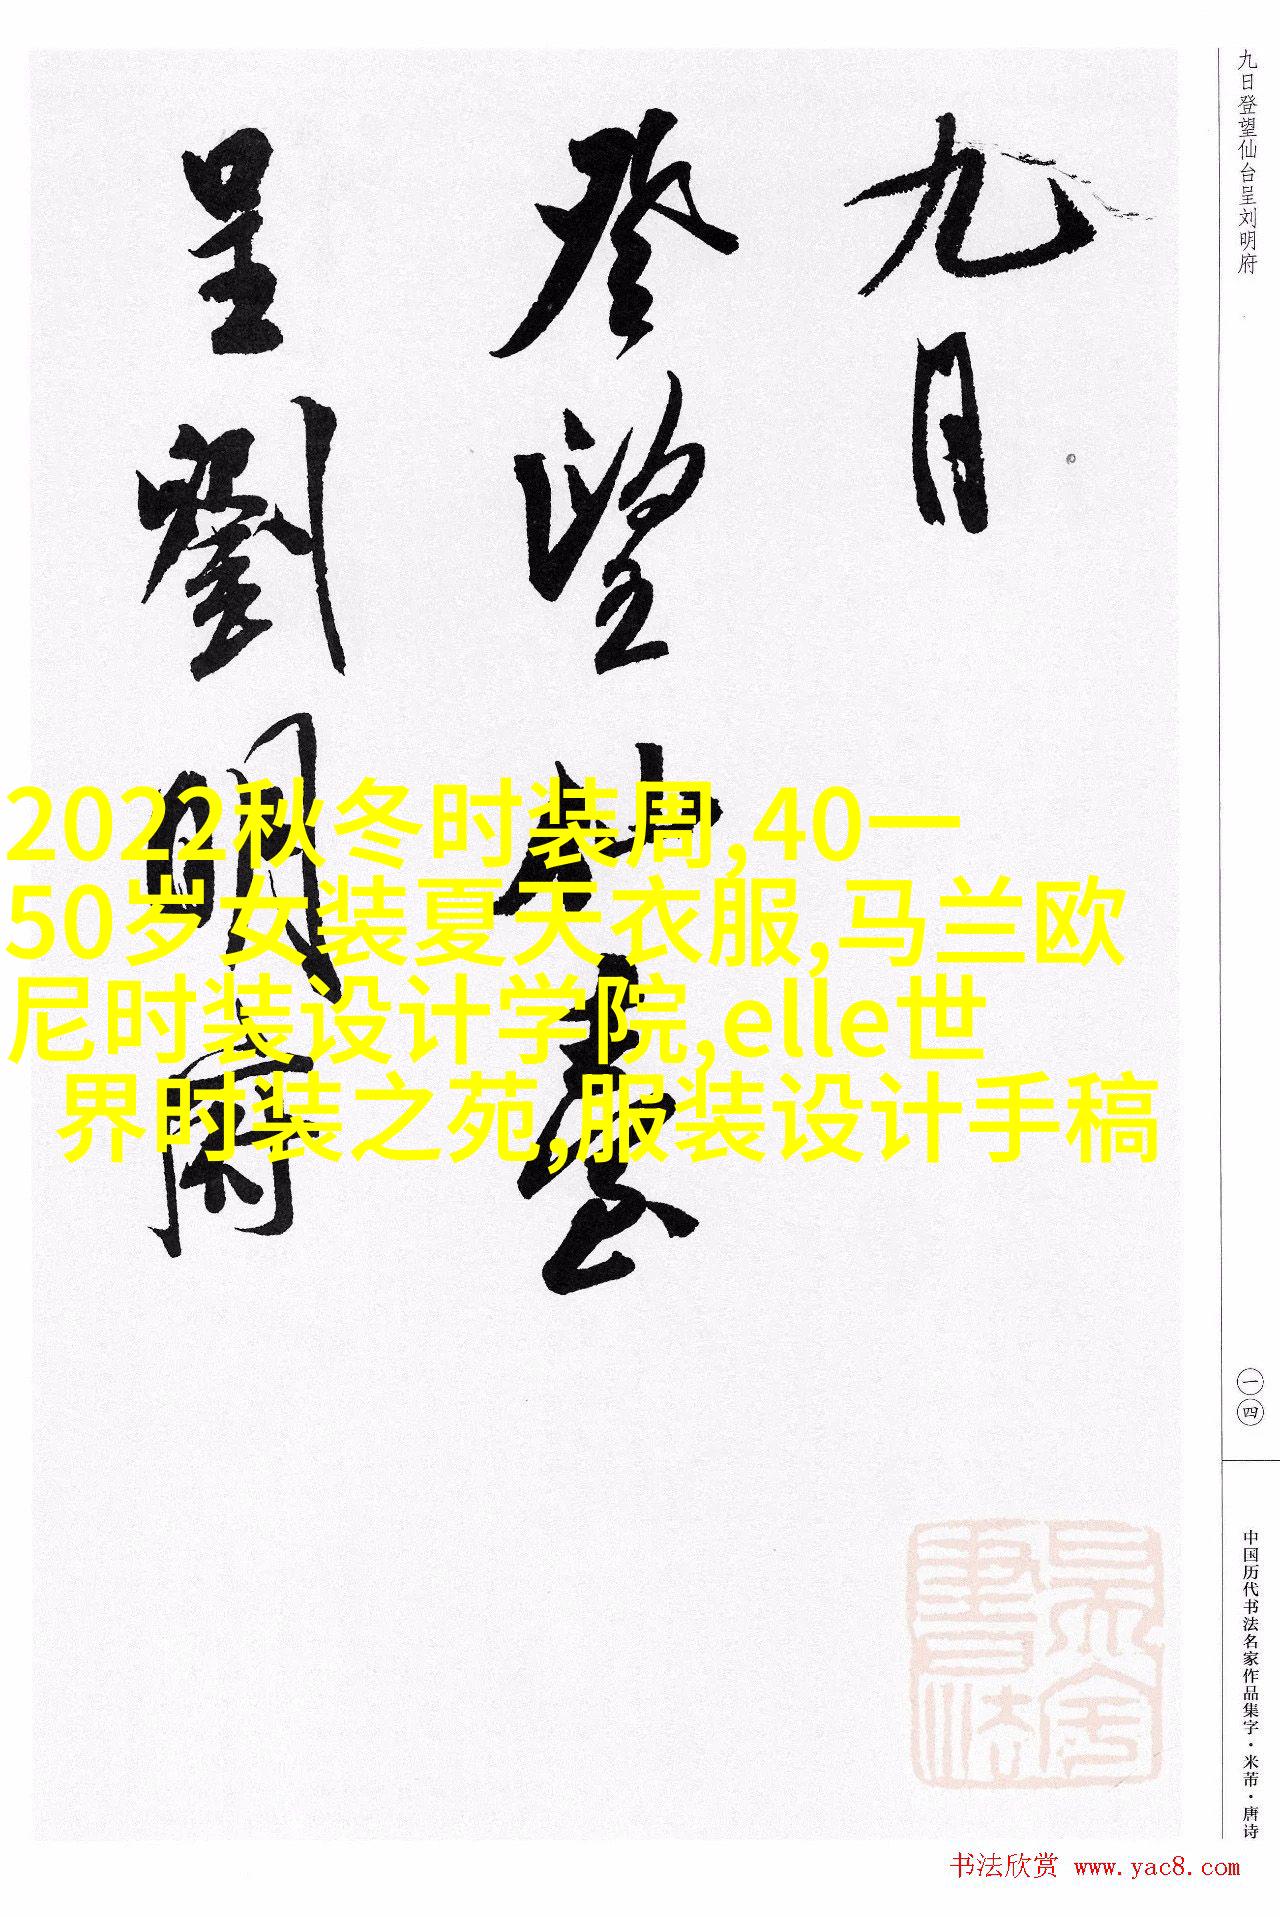 九日
登望仙臺
呈劉明府
九日登望仙台呈刘明府
2022秋冬时装周,40一
50岁女装夏天衣服,马兰欧
尼时装设计学院,elle世
界时装之苑,服装设计手稿
一四
中国历代书法名家作品集字·米芾·唐诗
书法欣赏 www.yac8.com